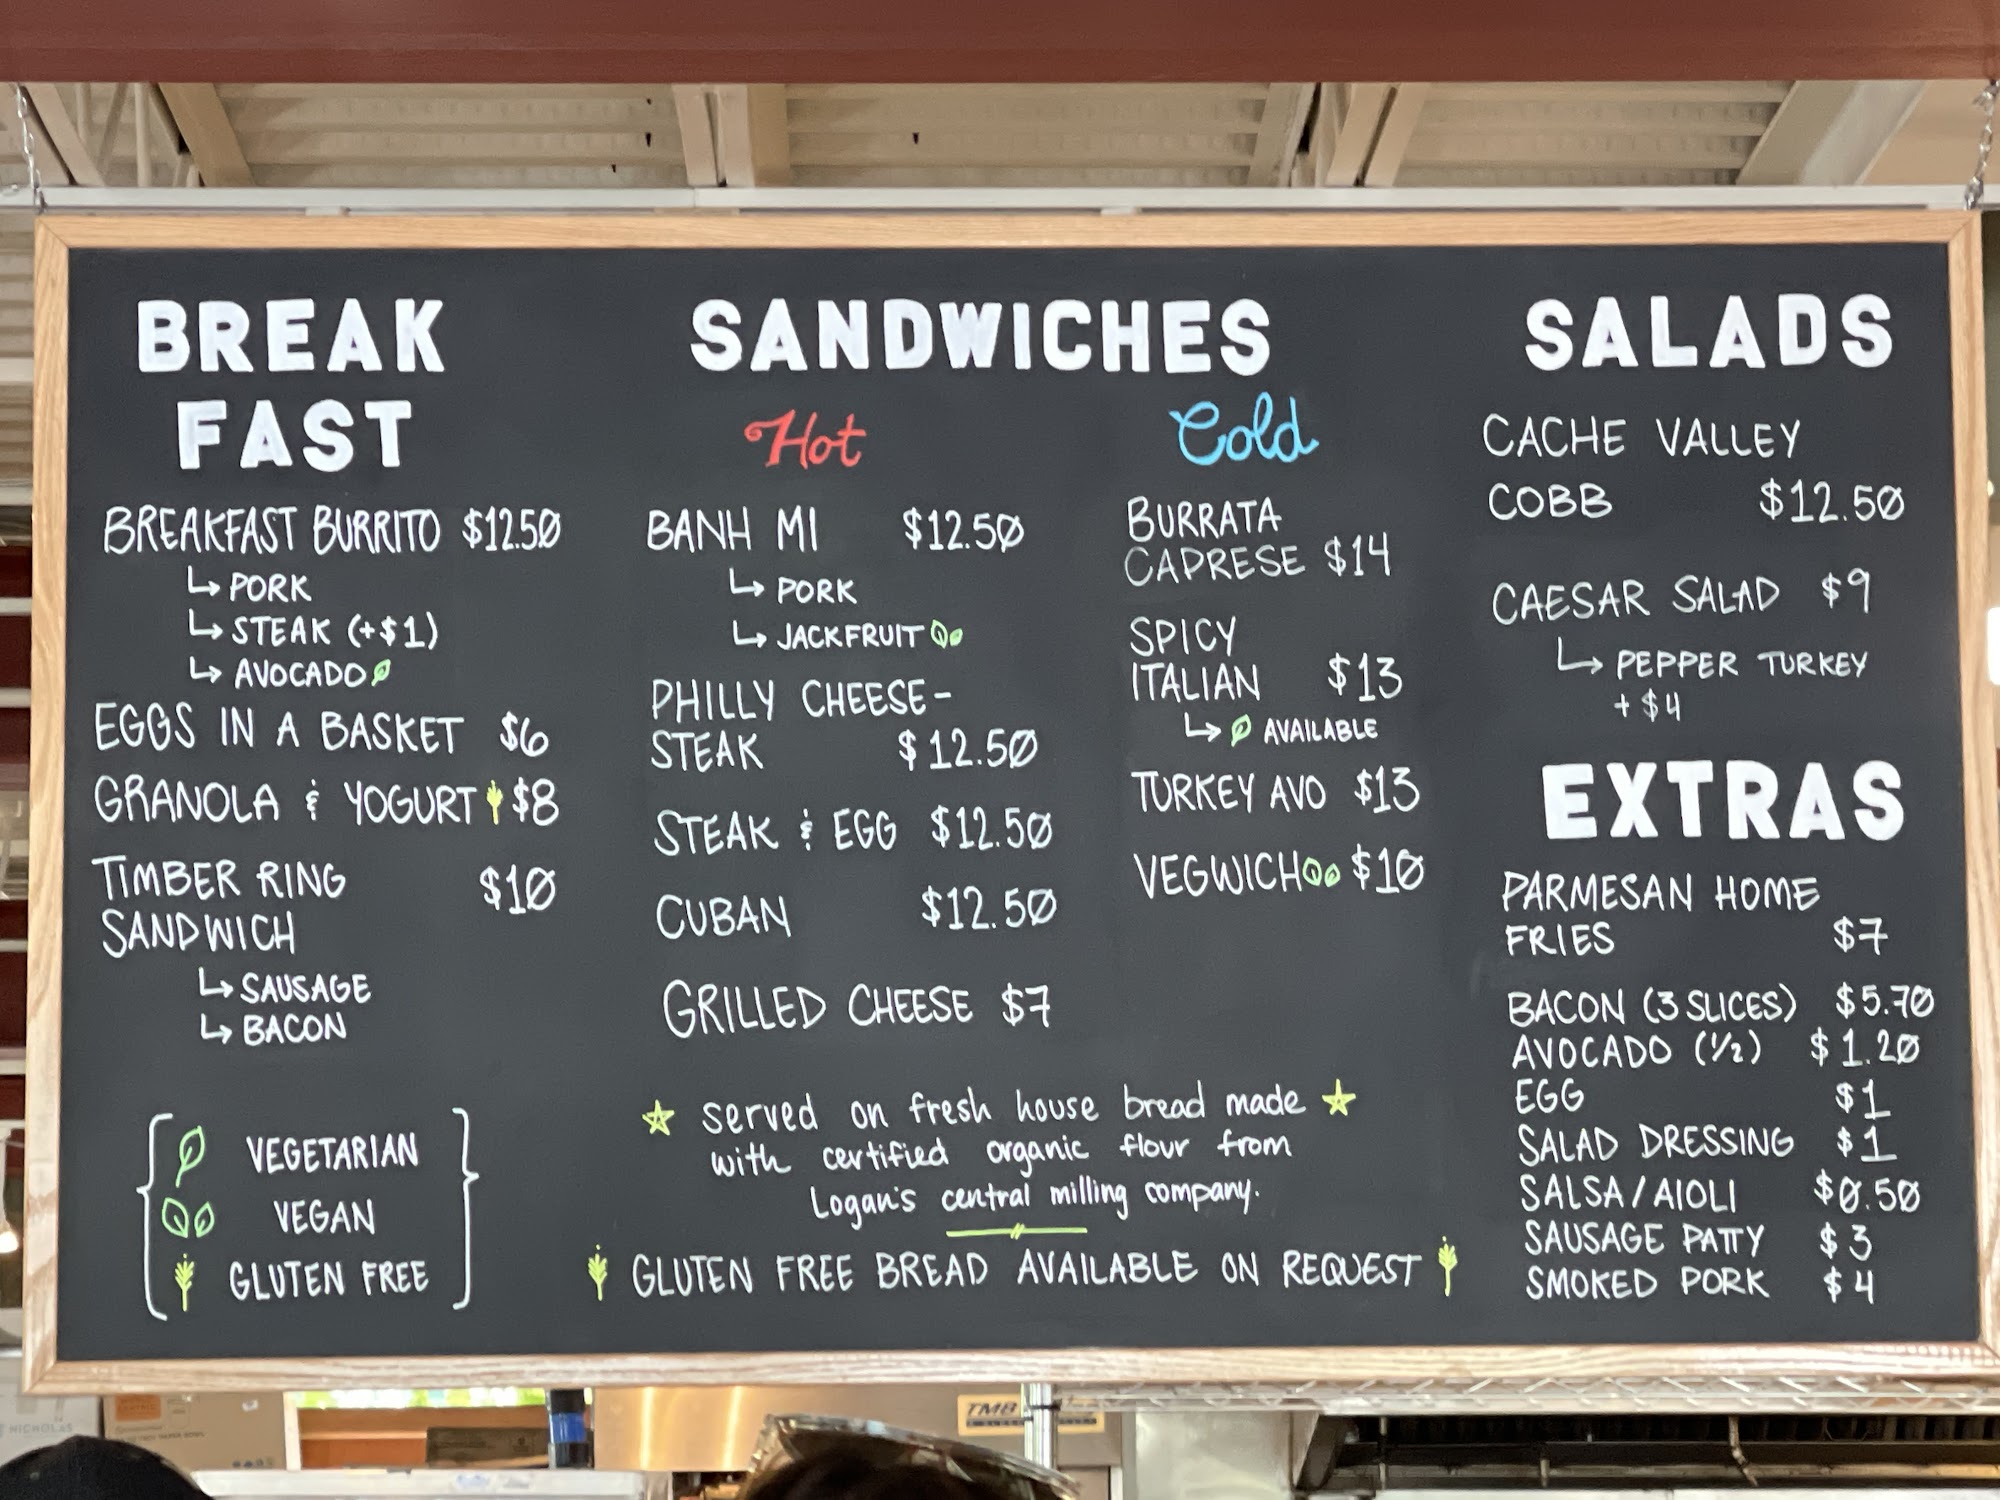 BREAK
FAST
BREAKFAST BURRITO $12.50
↳ PORK
↳ STEAK (+$1)
↳ AVOCADO
EGGS IN A BASKET $6
GRANOLA & YOGURT $8
TIMBER RING
SANDWICH $10
↳ SAUSAGE
↳ BACON
VEGETARIAN
VEGAN
GLUTEN FREE
SANDWICHES
Hot
BANH MI $12.50
↳ PORK
↳ JACKFRUIT
PHILLY CHEESE-
STEAK $12.50
STEAK & EGG $12.50
CUBAN $12.50
GRILLED CHEESE $7
Cold
BURRATA
CAPRESE $14
SPICY
ITALIAN $13
↳ AVAILABLE
TURKEY AVO $13
VEGWICH $10
served on fresh house bread made
with certified organic flour from
Logan's central milling company.
GLUTEN FREE BREAD AVAILABLE ON REQUEST
SALADS
CACHE VALLEY
COBB $12.50
CAESAR SALAD $9
↳ PEPPER TURKEY
+ $4
EXTRAS
PARMESAN HOME
FRIES $7
BACON (3 SLICES) $5.70
AVOCADO (1/2) $1.20
EGG $1
SALAD DRESSING $1
SALSA/AIOLI $0.50
SAUSAGE PATTY $3
SMOKED PORK $4
NICHOLAS
TMB